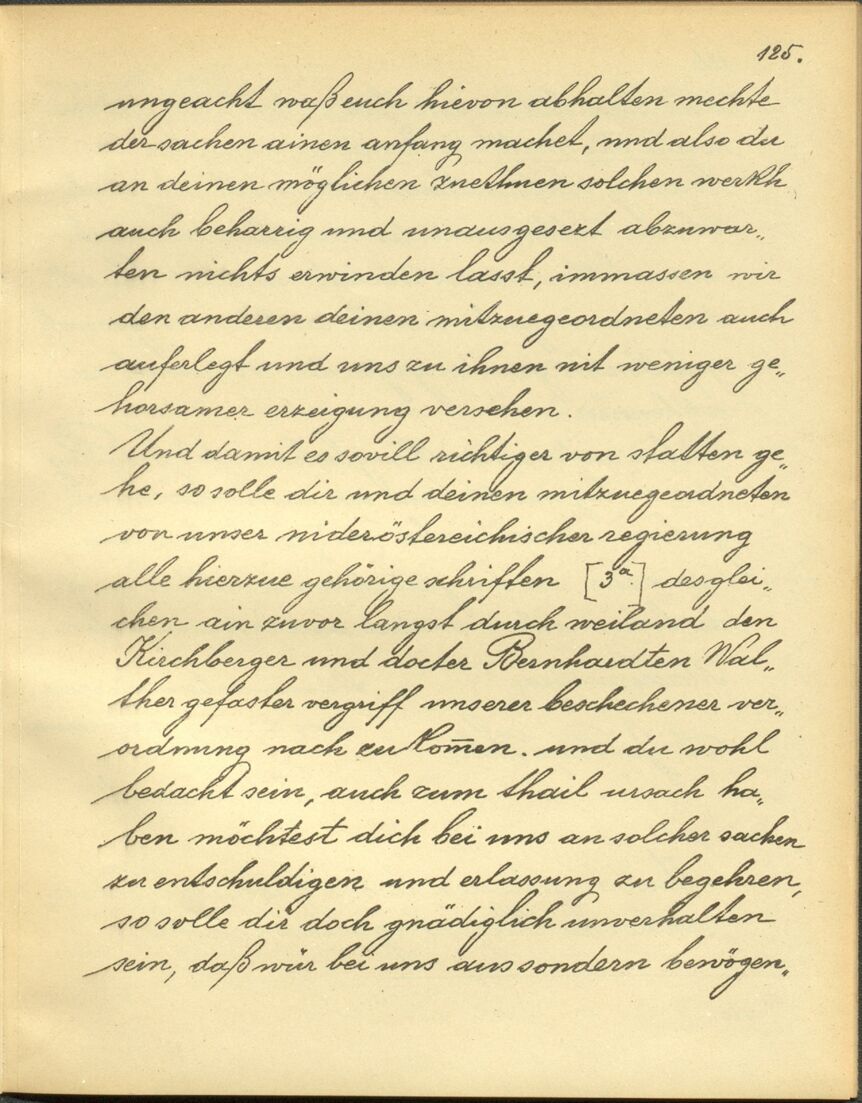 125.
ungeacht waß euch hievon abhalten mechte
der sachen ainen anfang machet, und also du
an deinen möglichen zuethuen solchen werkh
auch beharrig und unausgesezt abzuwar„
ten nichts erwinden lasst, immassen wir
den anderen deinen mitzuegeordneten auch
auferlegt und uns zu ihnen nit weniger ge„
horsamer erzeigung versehen.
Und damit es sovill richtiger von statten ge„
he, so solle dir und deinen mitzuegeordneten
von unser niderösterreichischer regierung
alle hierzue gehörige schriften [3a.] desglei„
chen ain zuvor langst durch weiland den
Kirchberger und docter Bernhardten Wal„
ther gefaster vergriff unserer beschechener ver„
ordnung nach zu kom̄en. und du wohl
bedacht sein, auch zum thail ursach ha„
ben möchtest dich bei uns an solcher sachen
zu entschuldigen und erlassung zu begehren,
so solle dir doch gnädiglich unverhalten
sein, daß wür bei uns aus sondern bewögen„